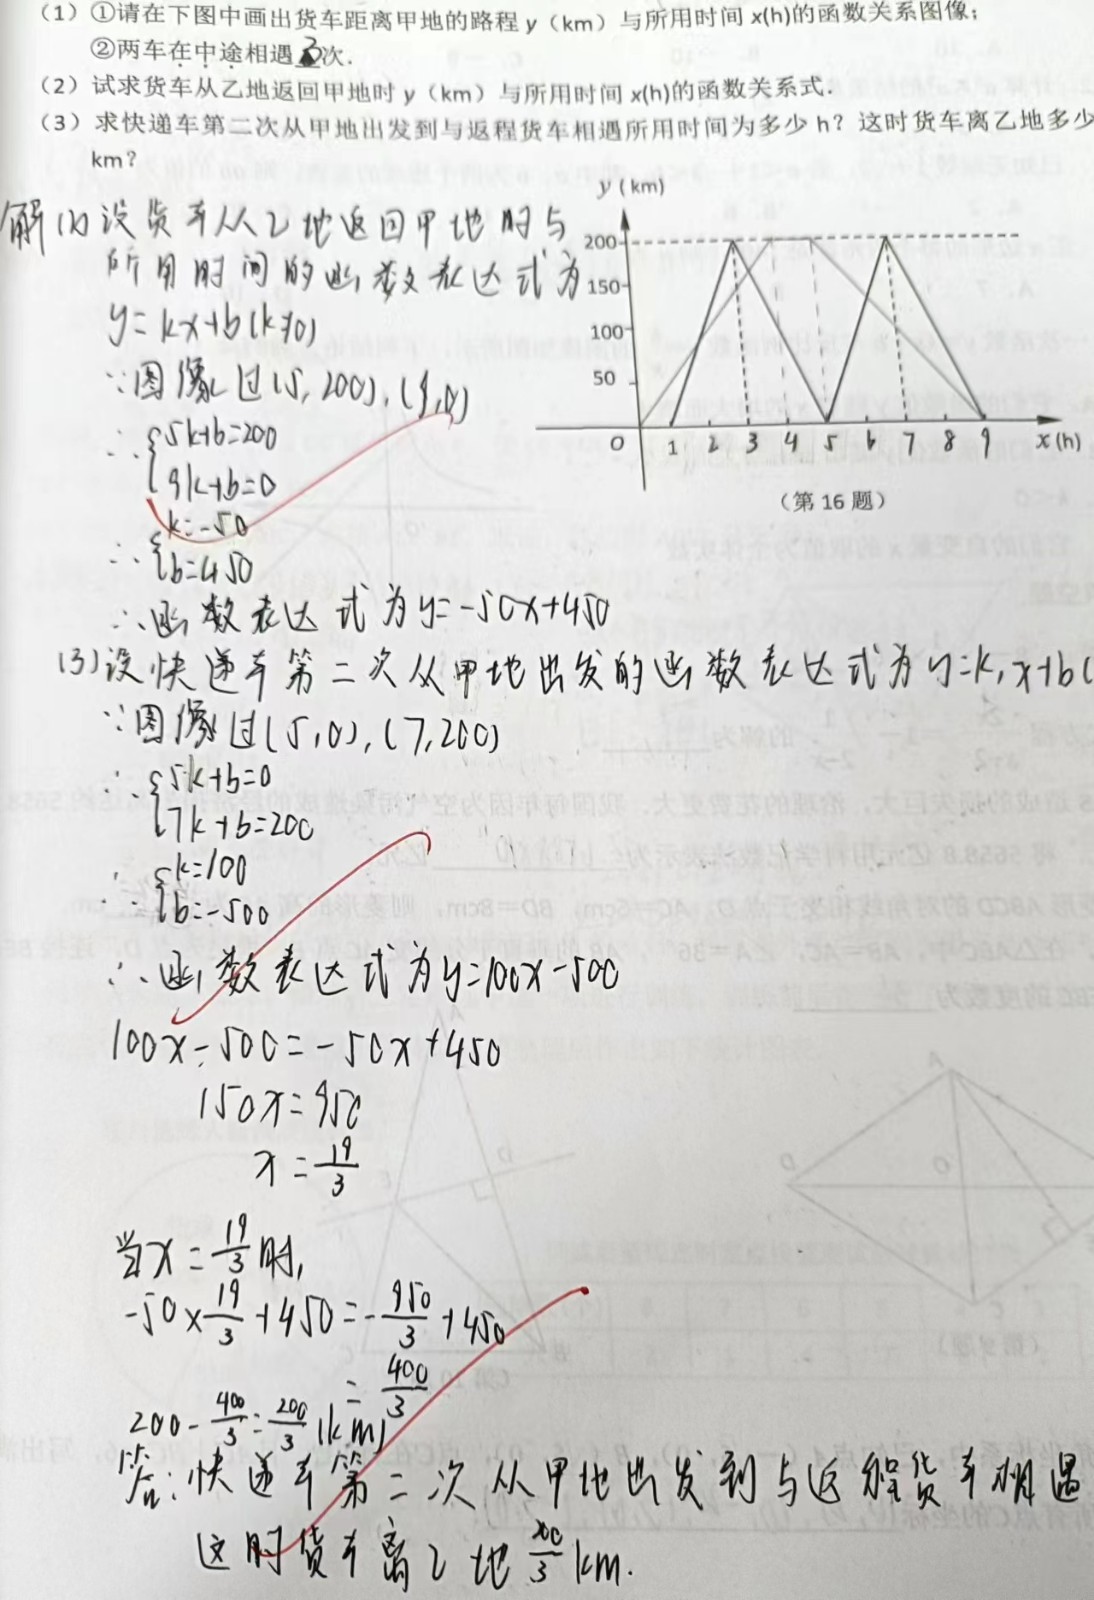 (1) ①请在下图中画出货车距离甲地的路程 y（km）与所用时间 x(h)的函数关系图像；
②两车在中途相遇 3 次.
(2) 试求货车从乙地返回甲地时 y（km）与所用时间 x(h)的函数关系式.
(3) 求快递车第二次从甲地出发到与返程货车相遇所用时间为多少 h？这时货车离乙地多少
km？
y (km)
200
150
100
50
O 1 2 3 4 5 6 7 8 9 x (h)
（第 16 题）
解(1)设货车从乙地返回甲地时与
所用时间的函数表达式为
y=kx+b(k≠0)
∵图像过(5,200),(9,0)
∴{5k+b=200
9k+b=0
∴{k=-50
b=450
∴函数表达式为y=-50x+450
(3)设快递车第二次从甲地出发的函数表达式为y=k,x+b(
∵图像过(5,0),(7,200)
∴{5k+b=0
7k+b=200
∴{k=100
b=-500
∴函数表达式为y=100x-500
100x-500=-50x+450
150x=950
x=19/3
当x=19/3时,
-50×19/3+450=-950/3+450
=400/3
200-400/3=200/3(km)
答:快递车第二次从甲地出发到与返程货车相遇
这时货车离乙地200/3km.